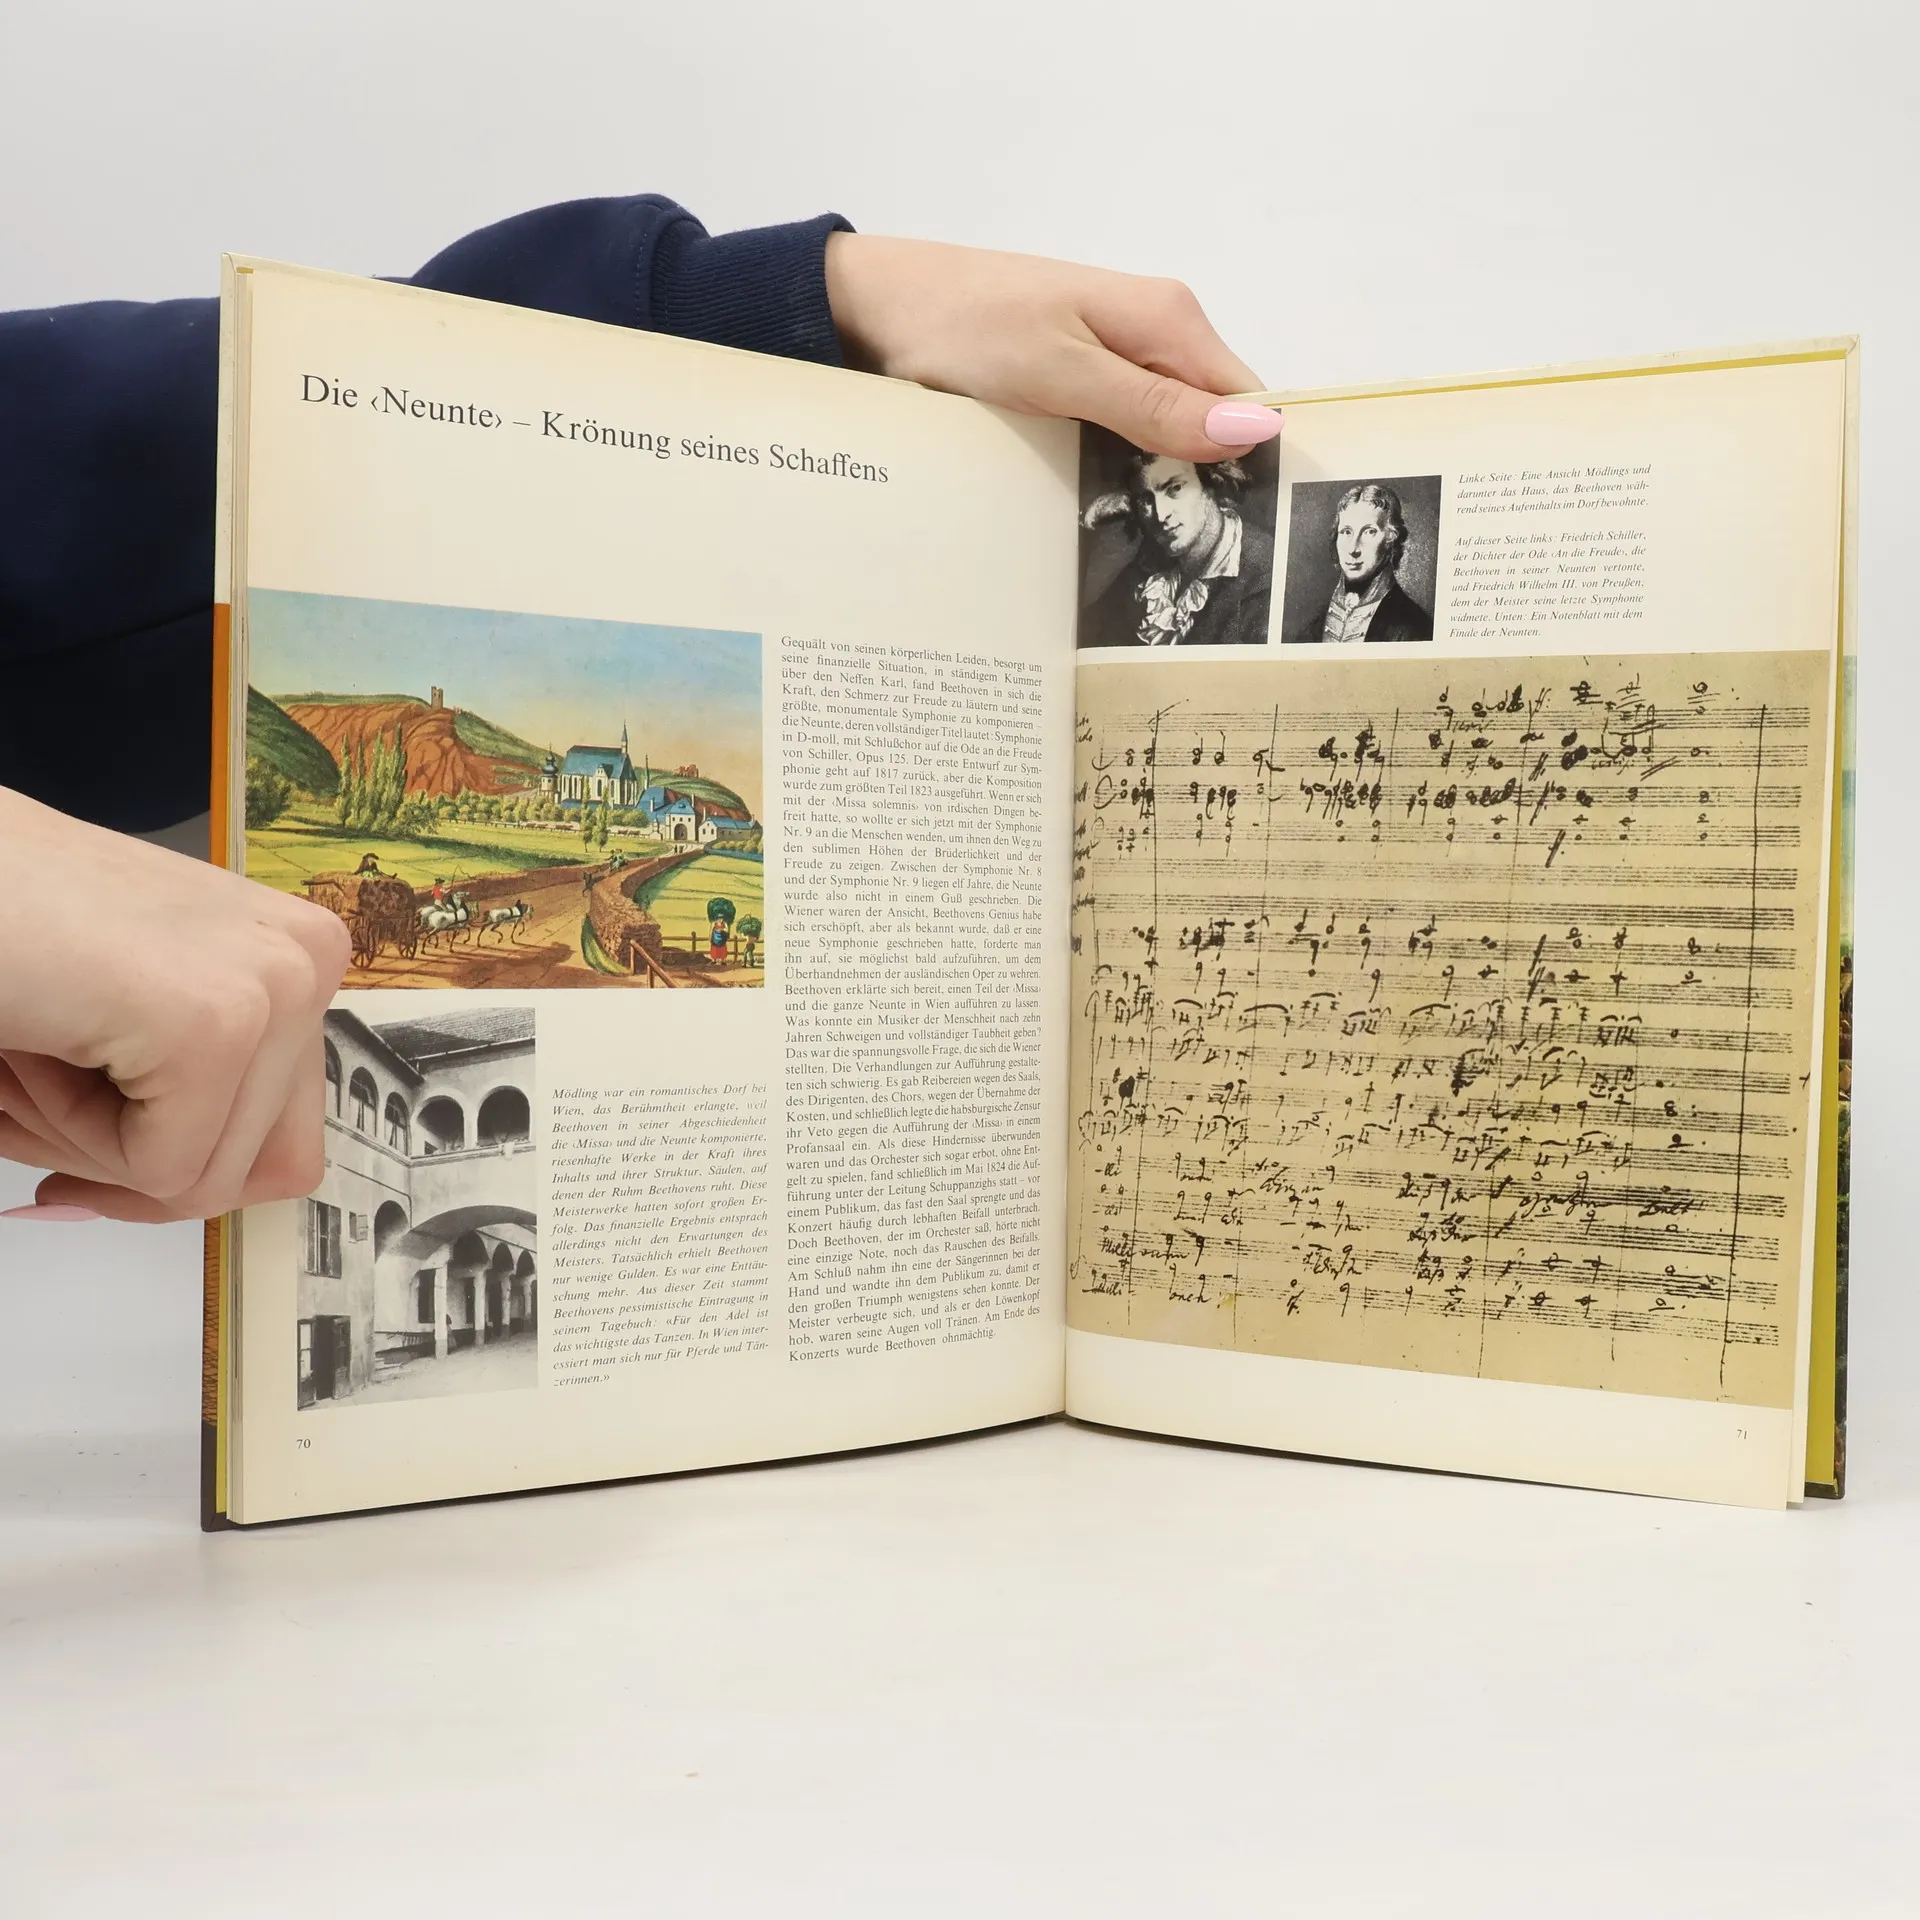 Die ‹Neunte› – Krönung seines Schaffens
Gequält von seinen körperlichen Leiden, besorgt um
seine finanzielle Situation, in ständigem Kummer
über den Neffen Karl, fand Beethoven in sich die
Kraft, den Schmerz zur Freude zu läutern und seine
größte, monumentale Symphonie zu komponieren –
die Neunte, deren vollständiger Titel lautet: Symphonie
in D-moll, mit Schlußchor auf die Ode an die Freude
von Schiller, Opus 125. Der erste Entwurf zur Sym-
phonie geht auf 1817 zurück, aber die Komposition
wurde zum größten Teil 1823 ausgeführt. Wenn er sich
mit der ‹Missa solemnis› von irdischen Dingen be-
freit hatte, so wollte er sich jetzt mit der Symphonie
Nr. 9 an die Menschen wenden, um ihnen den Weg zu
den sublimen Höhen der Brüderlichkeit und der
Freude zu zeigen. Zwischen der Symphonie Nr. 8
und der Symphonie Nr. 9 liegen elf Jahre, die Neunte
wurde also nicht in einem Guß geschrieben. Die
Wiener waren der Ansicht, Beethovens Genius habe
sich erschöpft, aber als bekannt wurde, daß er eine
neue Symphonie geschrieben hatte, forderte man
ihn auf, sie möglichst bald aufzuführen, um dem
Überhandnehmen der ausländischen Oper zu wehren.
Beethoven erklärte sich bereit, einen Teil der ‹Missa›
und die ganze Neunte in Wien aufführen zu lassen.
Was konnte ein Musiker der Menschheit nach zehn
Jahren Schweigen und vollständiger Taubheit geben?
Das war die spannungsvolle Frage, die sich die Wiener
stellten. Die Verhandlungen zur Aufführung gestalte-
ten sich schwierig. Es gab Reibereien wegen des Saals,
des Dirigenten, des Chors, wegen der Übernahme der
Kosten, und schließlich legte die habsburgische Zensur
ihr Veto gegen die Aufführung der ‹Missa› in einem
Profansaal ein. Als diese Hindernisse überwunden
waren und das Orchester sich sogar erbot, ohne Ent-
gelt zu spielen, fand schließlich im Mai 1824 die Auf-
führung unter der Leitung Schuppanzighs statt – vor
einem Publikum, das fast den Saal sprengte und das
Konzert häufig durch lebhaften Beifall unterbrach.
Doch Beethoven, der im Orchester saß, hörte nicht
eine einzige Note, noch das Rauschen des Beifalls.
Am Schluß nahm ihn eine der Sängerinnen bei der
Hand und wandte ihn dem Publikum zu, damit er
den großen Triumph wenigstens sehen konnte. Der
Meister verbeugte sich, und als er den Löwenkopf
hob, waren seine Augen voll Tränen. Am Ende des
Konzerts wurde Beethoven ohnmächtig.
Mödling war ein romantisches Dorf bei
Wien, das Berühmtheit erlangte, weil
Beethoven in seiner Abgeschiedenheit
die ‹Missa› und die Neunte komponierte,
riesenhafte Werke in der Kraft ihres
Inhalts und ihrer Struktur, Säulen, auf
denen der Ruhm Beethovens ruht. Diese
Meisterwerke hatten sofort großen Er-
folg. Das finanzielle Ergebnis entsprach
allerdings nicht den Erwartungen des
Meisters. Tatsächlich erhielt Beethoven
nur wenige Gulden. Es war eine Enttäu-
schung mehr. Aus dieser Zeit stammt
Beethovens pessimistische Eintragung in
seinem Tagebuch: «Für den Adel ist
das wichtigste das Tanzen. In Wien inter-
essiert man sich nur für Pferde und Tän-
zerinnen.»
70
Linke Seite: Eine Ansicht Mödlings und
darunter das Haus, das Beethoven wäh-
rend seines Aufenthalts im Dorf bewohnte.
Auf dieser Seite links: Friedrich Schiller,
der Dichter der Ode ‹An die Freude›, die
Beethoven in seiner Neunten vertonte,
und Friedrich Wilhelm III. von Preußen,
dem der Meister seine letzte Symphonie
widmete. Unten: Ein Notenblatt mit dem
Finale der Neunten.
71